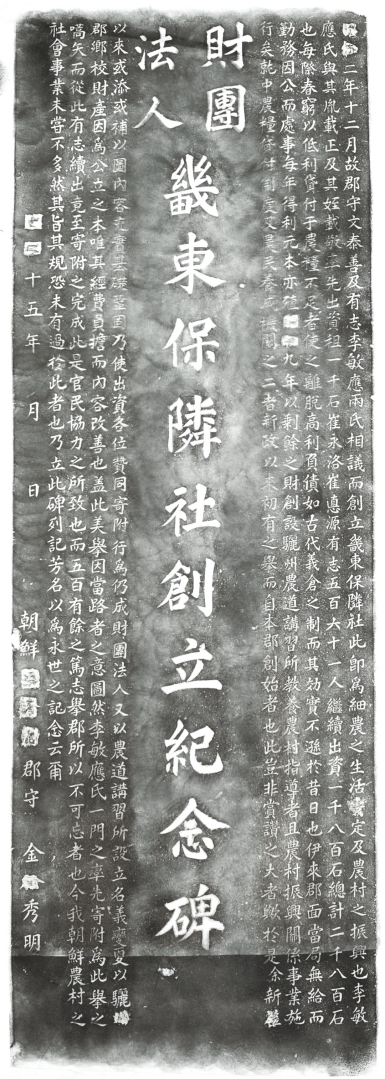 二年十二月故郡守文泰善及有志李敏應兩氏相議而創立畿東保隣社此卽爲細農之生活定及農村之振興也李敏
應氏與其胤載正及其姪載率先出資租一千石崔永洛崔悳源有志五百六十一人繼續出資一千八百石總計二千八百石
也每際春窮以低利貸付于農糧不足者使之難脫高利負債如古代義倉之制而其効實不遜於昔日也伊來郡面當局無給而
勤務因公而處事每年得利元本亦殖九年以剩餘之財創設驪州農道講習所敎養農村指導者且農村振興關係事業施
行矣乾中農糧之二者新政以來初有之擧而自本郡創始者也此豈非賞讚之大者歟於是余新
財團
法人
畿東保隣社創立紀念碑
以來或添或補以圖內容充實基礎鞏固乃使出資各位贊同寄附行爲仍成財團法人又以農道講習所設立名義變更以驪
郡鄕校財產因爲公立之本唯其經費負擔而內容改善也蓋此美擧因當路者之意圖然李敏應氏一門之率先寄附爲此擧之
嚆矢而從此有志續出竟至寄附之完成此是官民協力之所致也而五百有餘之篤志擧郡所以不可忘者也今我朝鮮農村之
社會事業未嘗不多然其旨其規恐未有過於此者也乃立此碑列記芳名以爲永世之記念云爾
十五年 月 日
朝鮮 郡守 金秀明